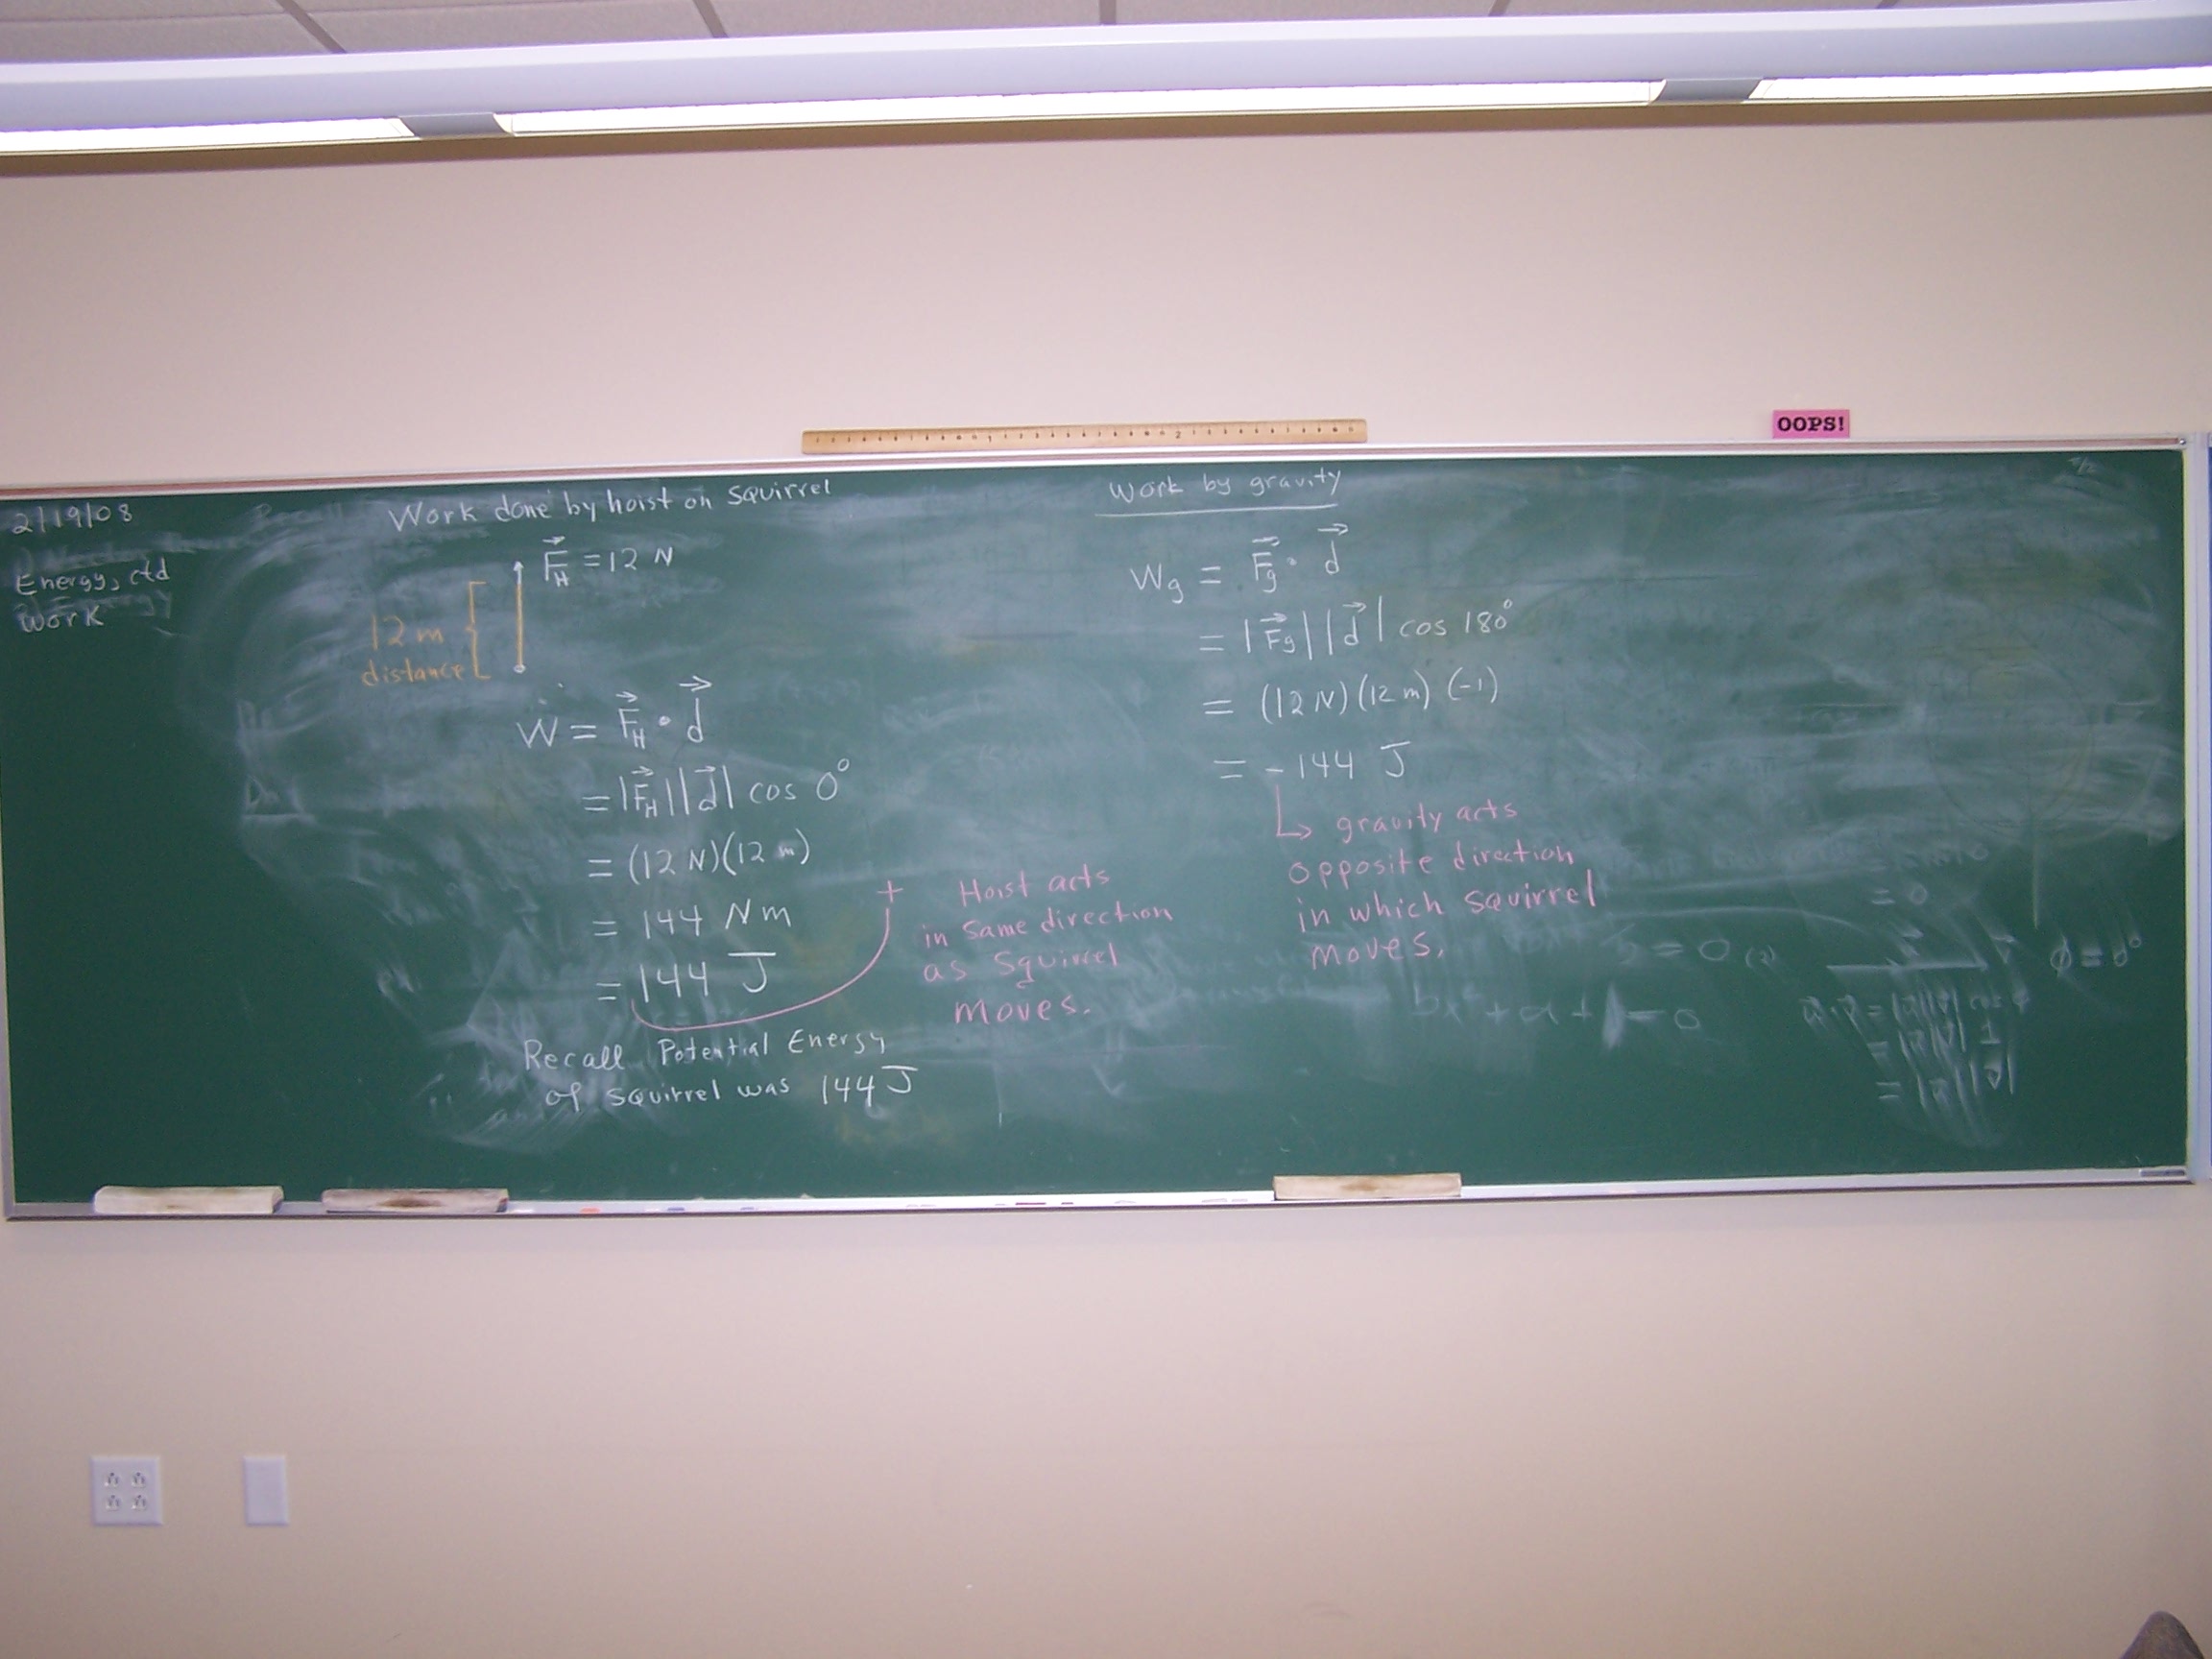 OOPS!
2/19/08
Energy, ctd
Work
Work done by hoist on squirrel
F⃗_H = 12 N
12 m
distance
W = F⃗_H · d⃗
= |F⃗_H| |d⃗| cos 0°
= (12 N)(12 m)
= 144 Nm
= 144 J
+ Hoist acts
in same direction
as squirrel
moves.
Recall Potential Energy
of squirrel was 144 J
Work by gravity
W_g = F⃗_g · d⃗
= |F⃗_g| |d⃗| cos 180°
= (12 N)(12 m)(-1)
= -144 J
↳ gravity acts
opposite direction
in which squirrel
moves.
= 0
φ = 0°